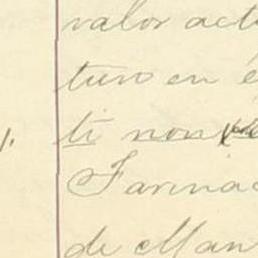 valor act
tuvo en é
ti non
Farmac
de Man